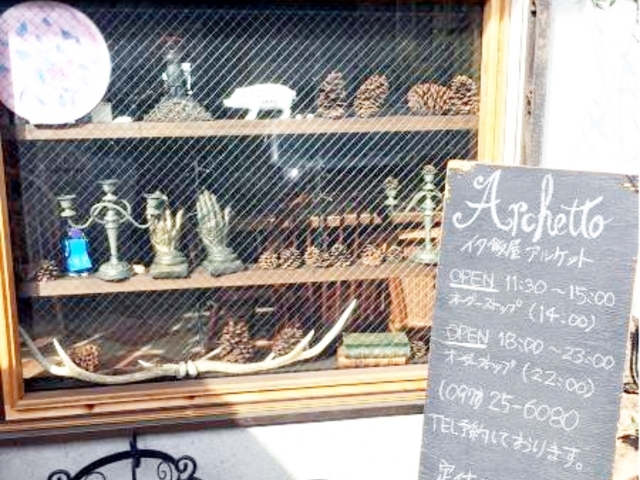 Archetto
イタ飯屋 アルケット
OPEN 11:30～15:00
オーダーストップ (14:00)
OPEN 18:00～23:00
オーダーストップ (22:00)
25-6080
TEL予約しております。